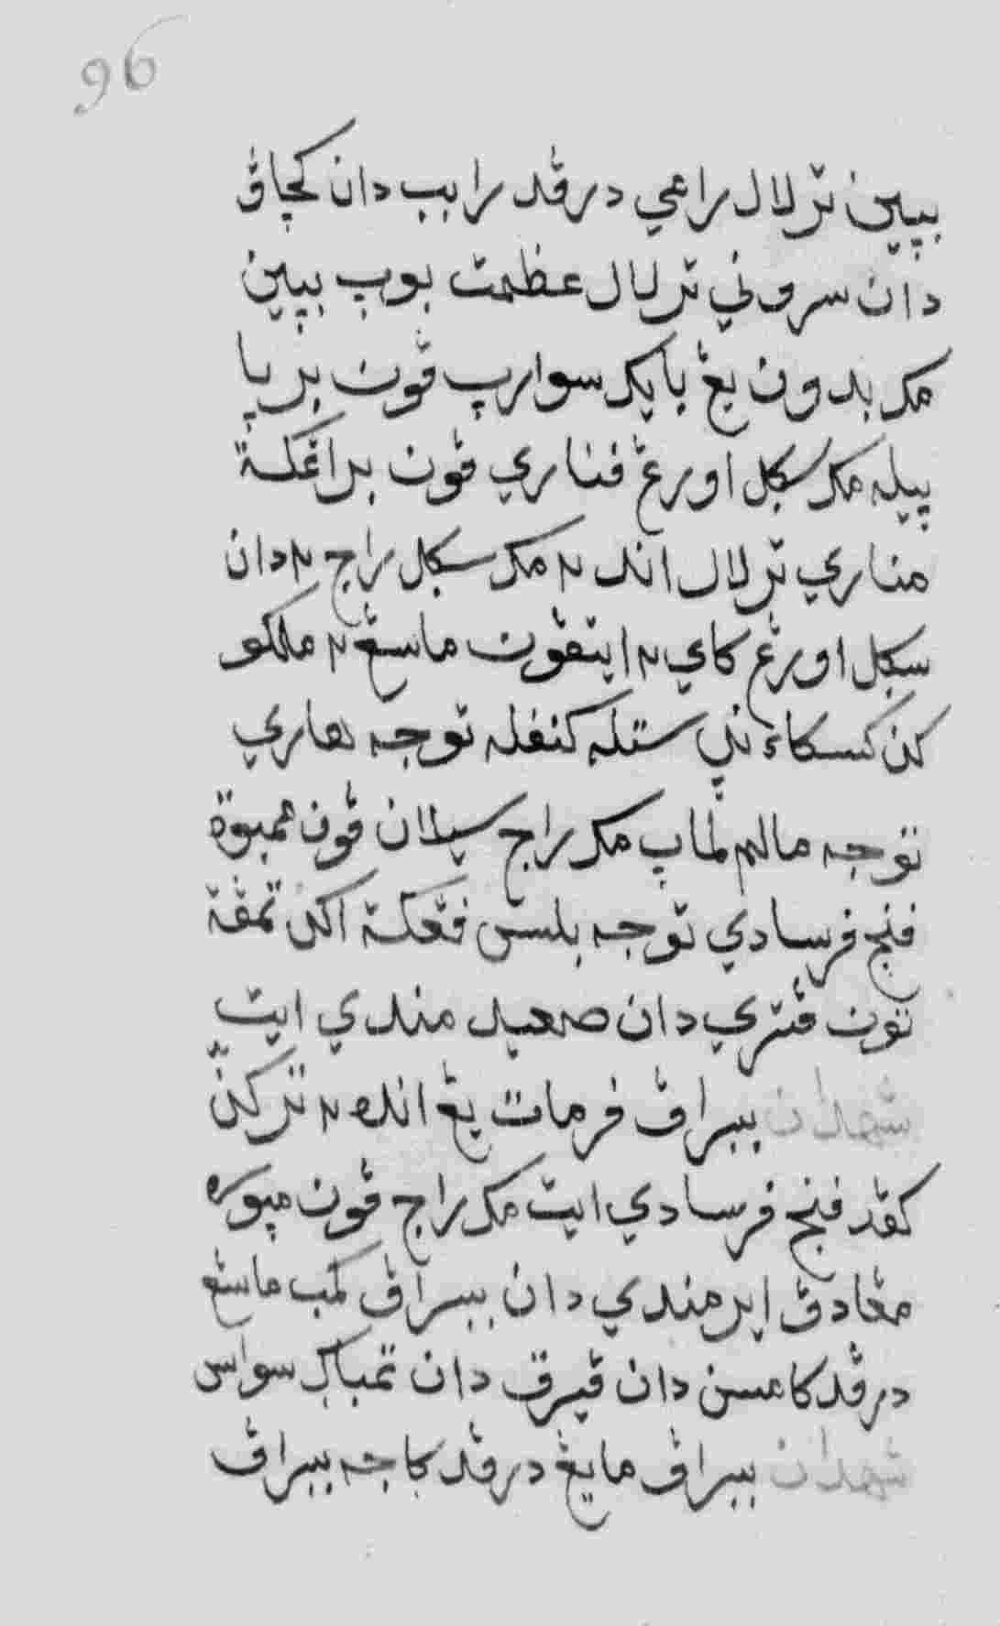 96
بيڽين تر لالو راعي درڤد راب دان كچاڤ
دان سروني تر لالو عظمت بوڽ بڽين
مك بدون يڠ باپك سوارڽ ڤون بر ڽا
ڽيله مك سكل اورڠ فناري ڤون براڠكة
مناري تر لالو انده مك سكل راج٢ دان
سكل اورڠ كاي٢ ايتڤون ماسڠ٢ ملاكو
كن كسكاءنڽ ستله كنفله توجه هاري
توجه مالم لماڽ مك راج سيلان ڤون ممبوة
فنج فرسادي توجه بلس فڠكة اكن تمڤة
تون ڤتري دان صعيد مندي ايت
شهدان ببراڤ فرمات يڠ انده٢ تركنڽ
كڤد فنج فرسادي ايت مك راج ڤون مپوره
مڠادڤ اير مندي دان ببراڤ كمب ماسڠ
درڤد كامسن دان ڤيرق دان تمباڬ سواس
شهدان ببراڤ مايڠ درڤد كاجه ببراڤ